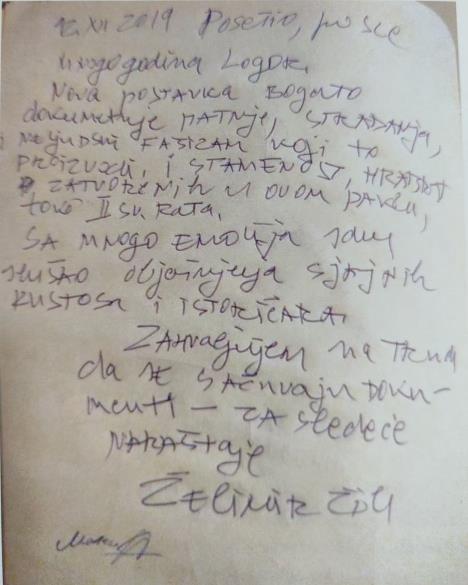 12. XI 2019 Posetio, posle
mnogo godina Logor.
Nova postavka Bogato
dokumentuje patnje, STRADANJA,
i neljudski FAŠIZAM koji to
proizvodi, i STAMENOST, HRABROST
ZATVORENIH U OVOM PAKLU,
tokô II sv. Rata.
SA MNOGO EMOCIJA sam
slušao objašnjenja sjajnih
kustosa i ISTORIČARA.
Zahvaljujem na trudu
da se sačuvaju doku-
menti – ZA sledeće
NARAŠTAJE
ŽELIMIR ŽILNIK